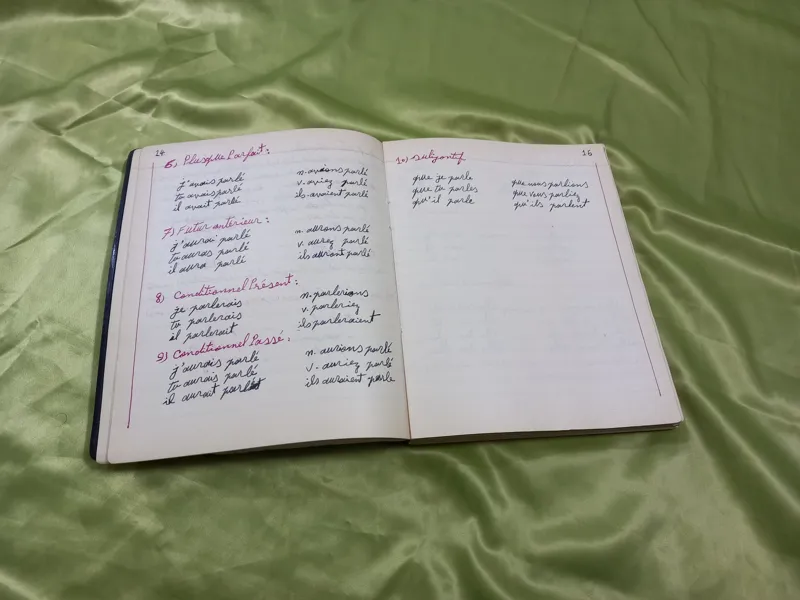 14
6) Plusque Parfait:
j'avais parlé n. avions parlé
tu avais parlé v. aviez parlé
il avait parlé ils avaient parlé
7) Futur antérieur:
j'aurai parlé n. aurons parlé
tu auras parlé v. aurez parlé
il aura parlé ils auront parlé
8) Conditionnel Présent:
je parlerais n. parlerions
tu parlerais v. parleriez
il parlerait ils parleraient
9) Conditionnel Passé:
j'aurais parlé n. aurions parlé
tu aurais parlé v. auriez parlé
il aurait parlé ils auraient parlé
16
10)
que je parle que nous parlions
que tu parles que vous parliez
qu'il parle qu'ils parlent